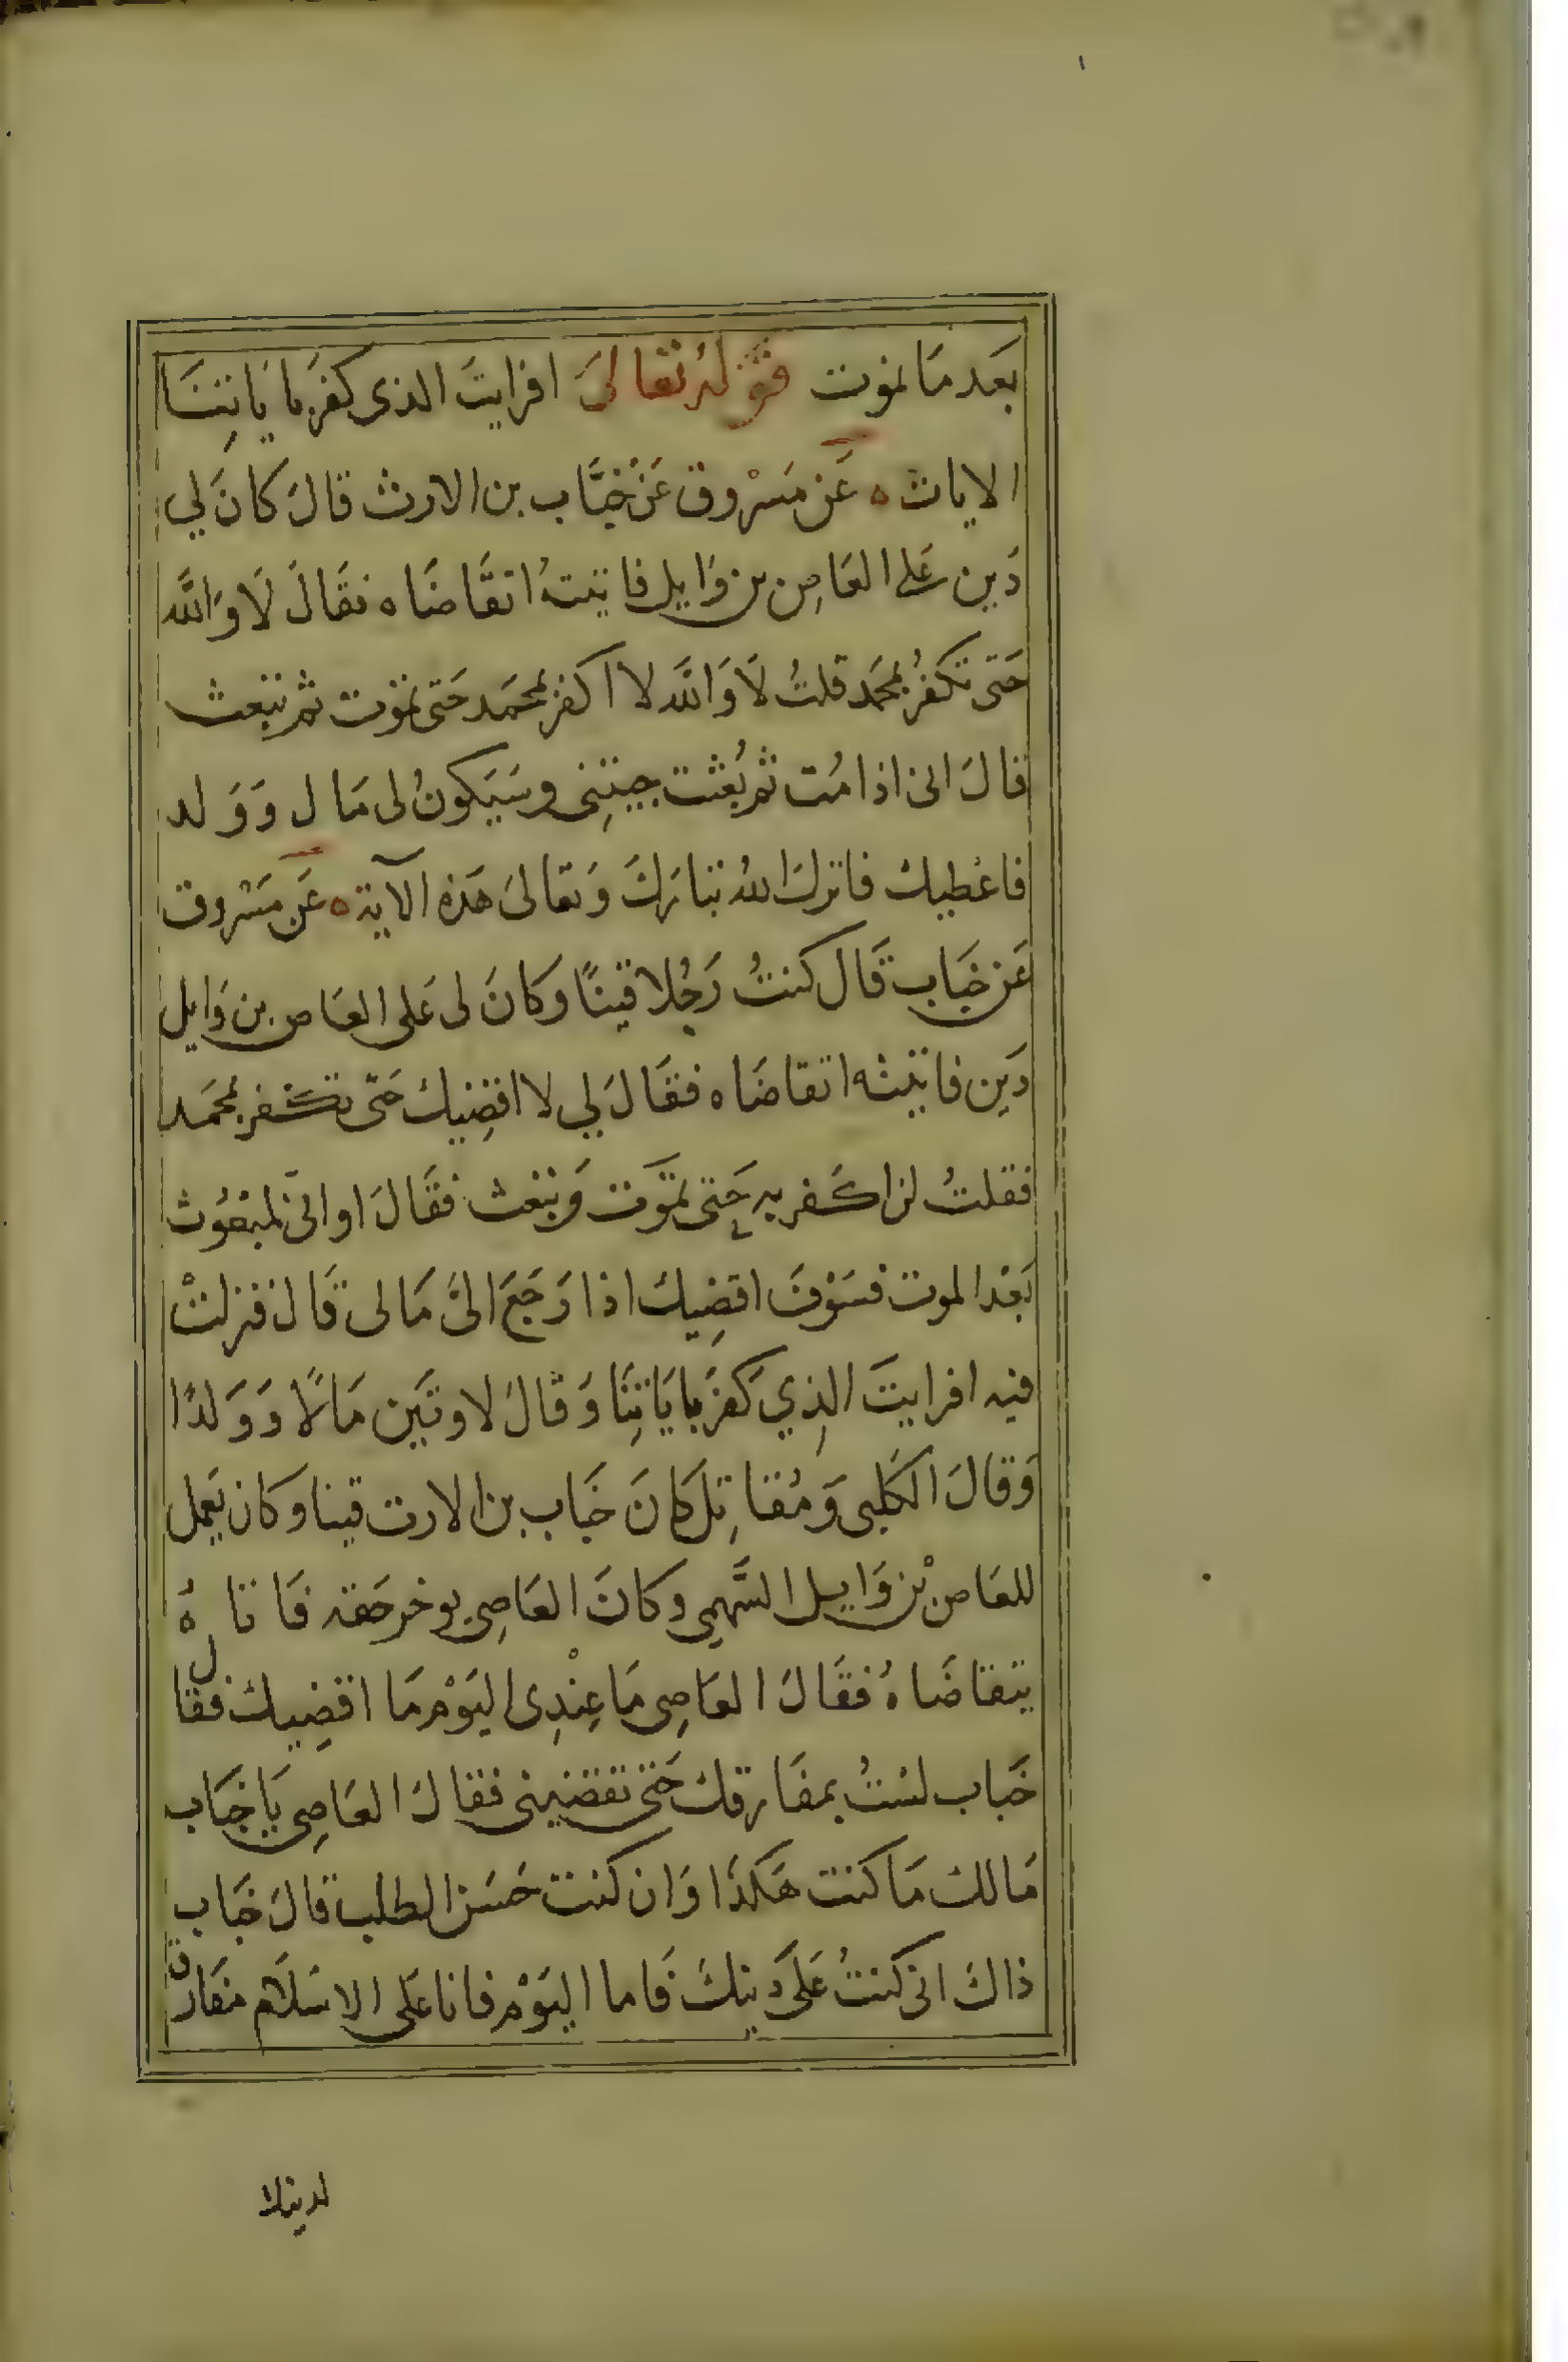 بَعَد مَا نموت قوله تعالىَ افرايتَ الذى كفَر با يَاتِنَا
الايات ه عَن مَسْروق عَنْ خَبَّاب بن الارث قالَ كانَ لي
دَين عَلى العَاصِ بن وَايل فاتيتهُ اتقَاضَاه فقَالَ لَا وَاللَّه
حَتى تكفرُ بمحَمد قلتُ لَا وَاللَّه لا اكفر بمحمَد حَتى تموْت ثم تبعث
قالَ انى اذا مُت ثم بُعثت جيتنِى وسَيَكونُ لى مَال وَوَلد
فاعْطيك فانزل اللهُ تبارَكَ وَتعالىَ هَذه الآية ه عَن مَسْروق
عَن خبَاب قَال كنتُ رَجُلا قينًا وَكانَ لى عَلى العَاص بن وَايل
دَين فاتيته اتقاضَاه فقَالَ لي لا اقضِيكَ حَتى تكفر بمحمَد
فقلتُ لن اكفر به حَتى تموَت وَتبعث فقَالَ او انىّ لمبعُوث
بَعْد الموت فسَوْفَ اقضِيكَ اذا رَجَعَ الىَّ مَالى قَال فنزلتْ
فيه افرايتَ الذِي كَفرَ بايَاتنَا وَقالَ لاوتَين مَالًا وَوَلدًا
وَقالَ الكَلبى وَمُقاتِل كانَ خَباب بن الارت قينا وكان يَعمل
للعَاص بْن وَايل السَّهمِي وكانَ العَاصِي يوخر حَقه فَاتاهُ
يتقاضَاهُ فقَالَ العَاصِى مَا عِنْدِى اليَوْم مَا اقضِيكَ فقال
خَباب لسْتُ بمفَارقك حَتى تقضينى فقالَ العَاصِى يَا خبَاب
مَالك مَا كنت هَكذَا وَان كنت حَسَن الطلب قالَ خبَاب
ذاكَ انى كنتُ عَلىَ دينكَ فَاما اليَوْم فانا عَلى الاسْلَام مفَارق
لدينك